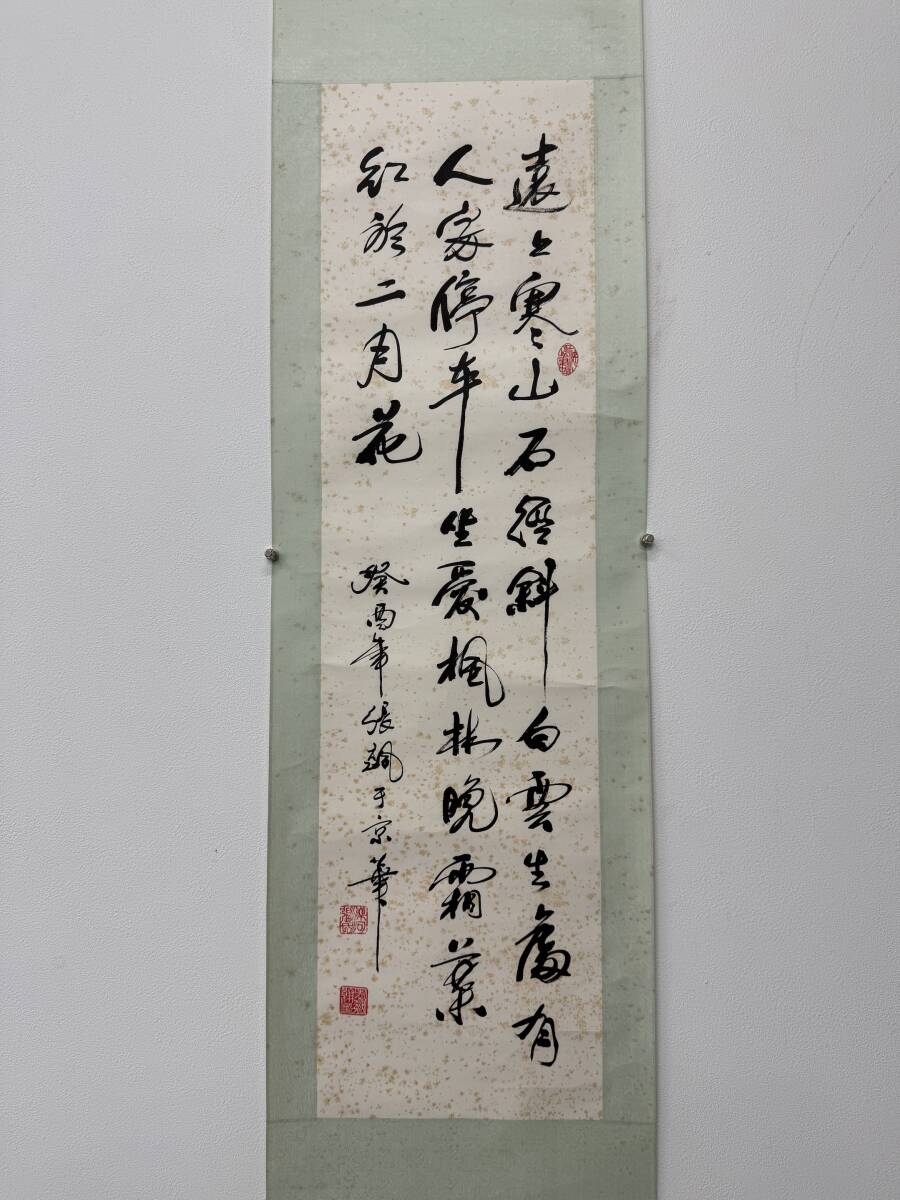 遠上寒山石徑斜白雲生處有
人家停車坐愛楓林晚霜葉
紅於二月花
癸酉年張飆于京華